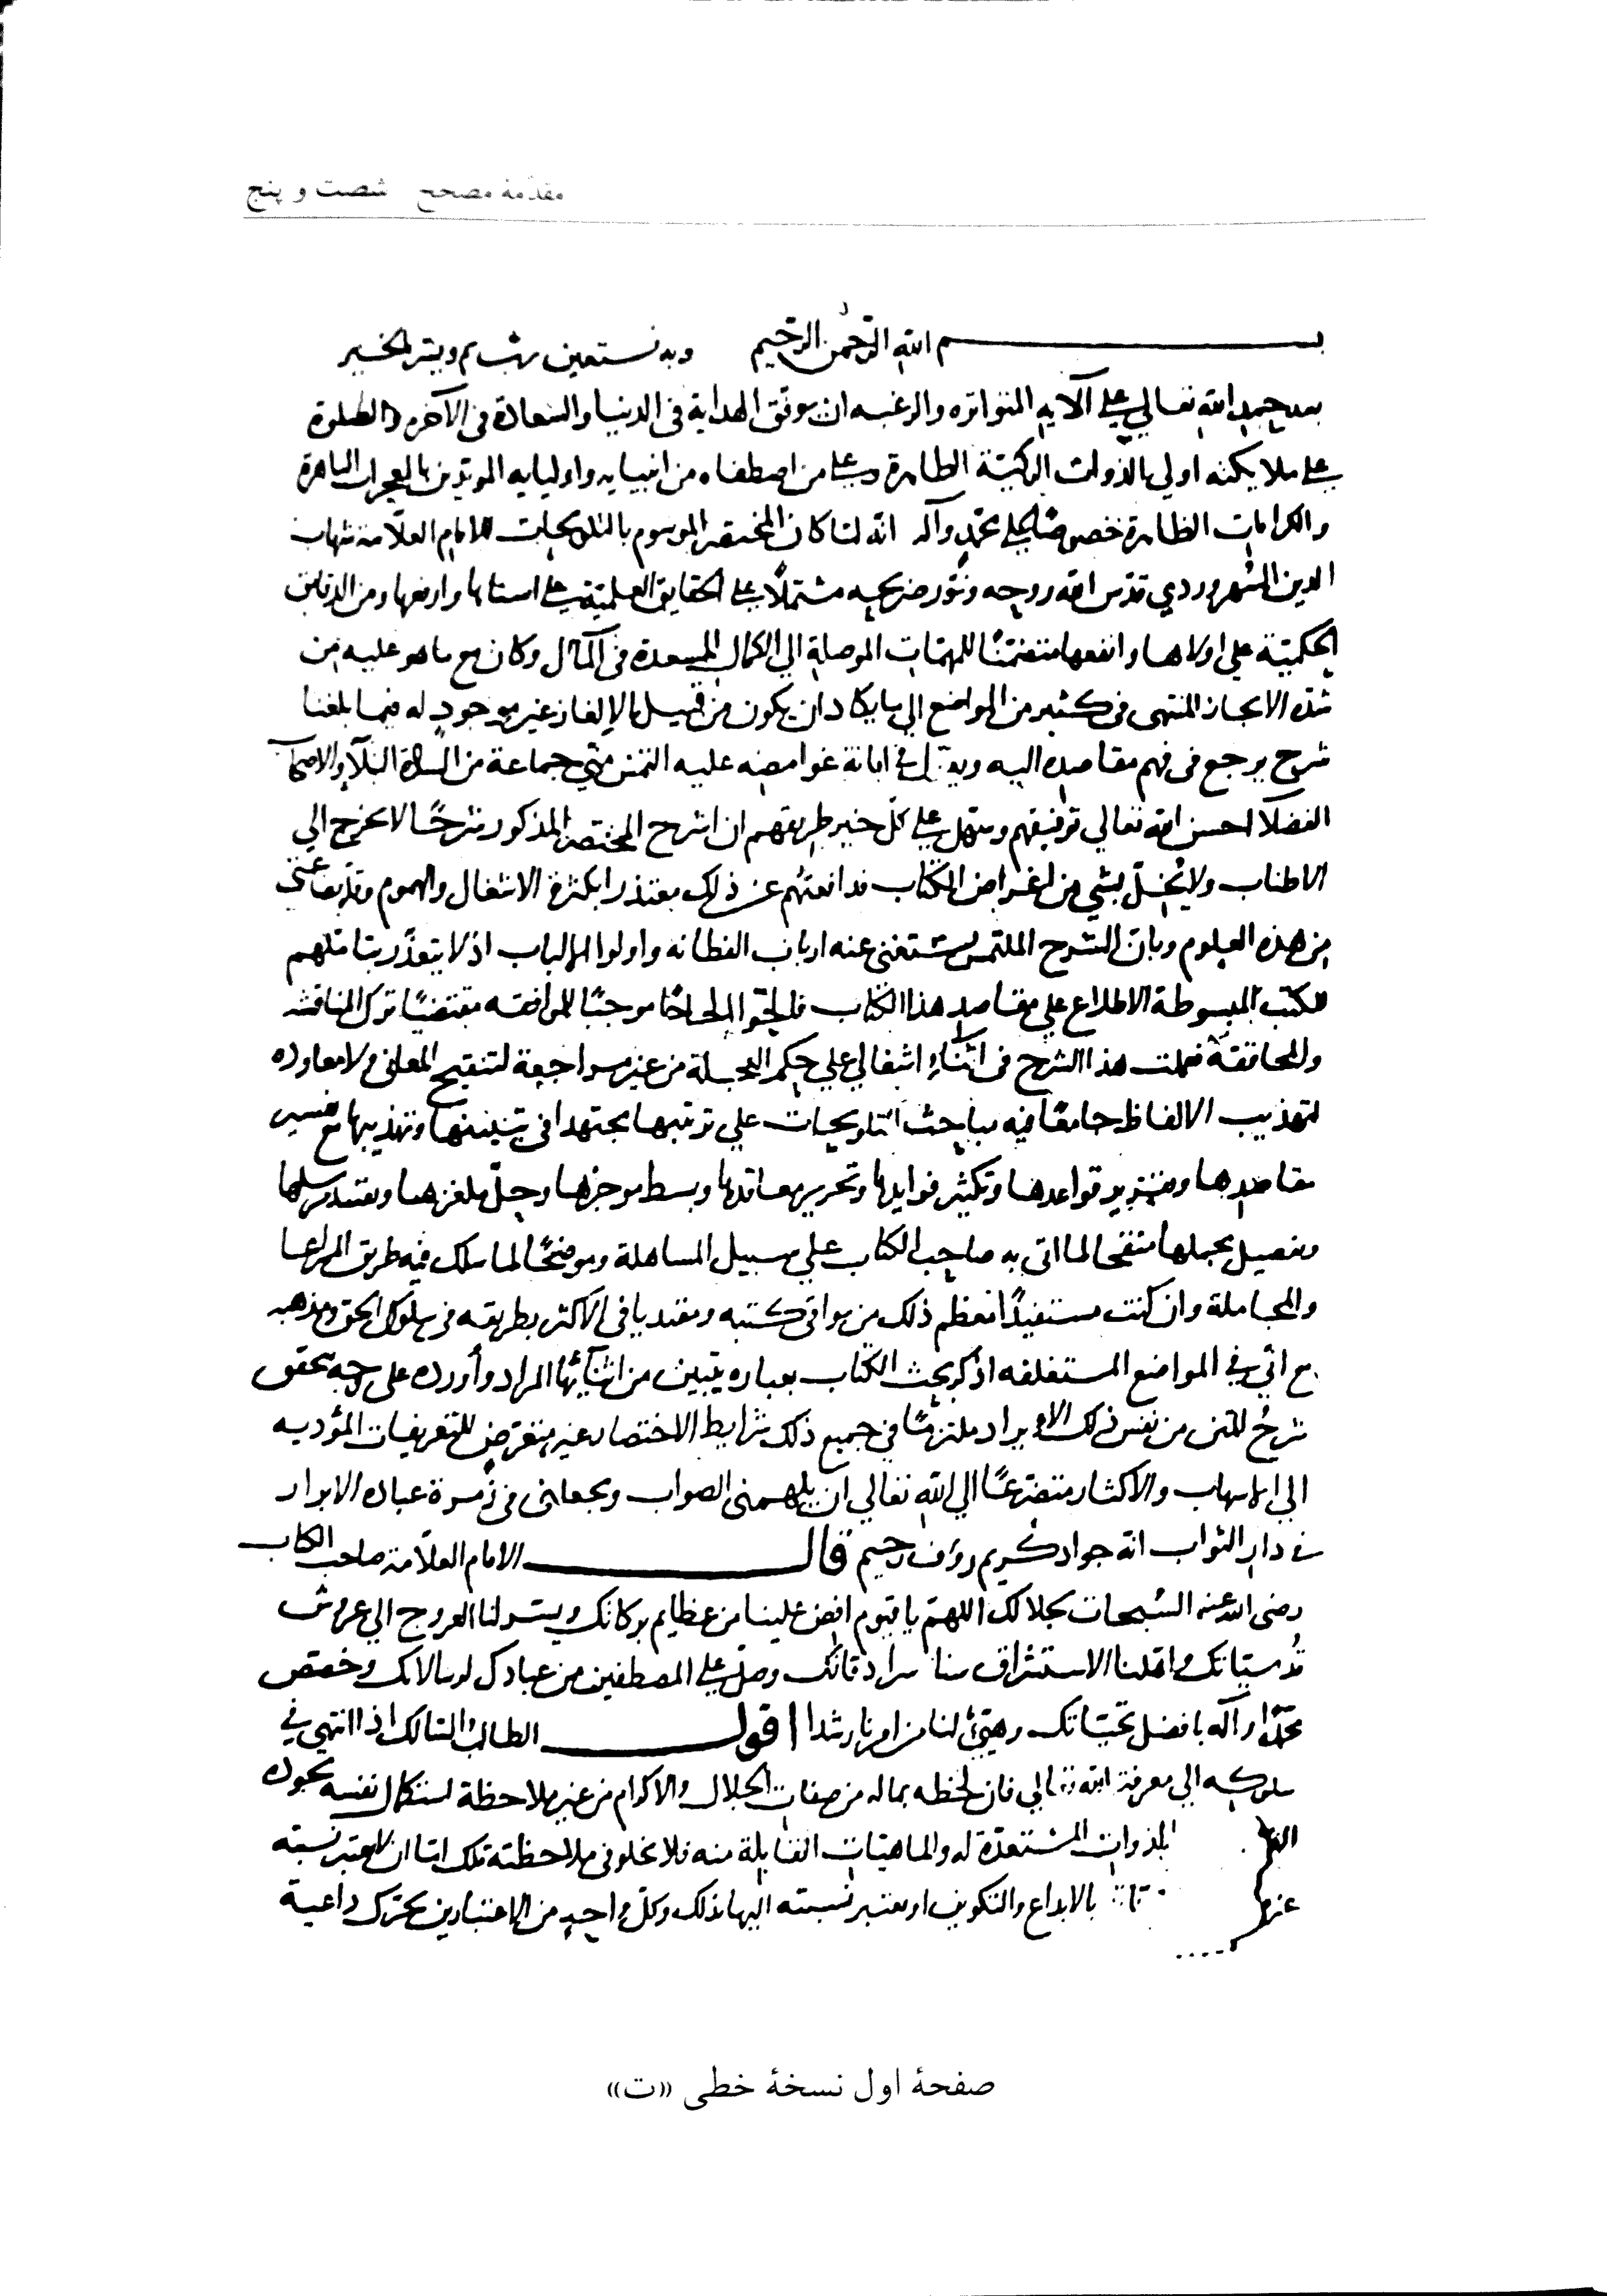 مقدّمهٔ مصحح شصت و پنج
بسم الله الرحمن الرحيم وبه نستعين رب تمم ويسر بالخير
بعد حمد الله تعالي علي آلايه المتواتره والرغبه ان يوفق الهداية في الدنيا والسعادة في الآخره والصلوة
علي ملايكته اولي الذوات الزكيّة الطاهرة وعلي من اصطفاه من انبيايه واوليايه المويّدين بالمعجزات الباهرة
والكرامات الظاهرة خصوصًا علي محمّدٍ وآله انّه لمّا كان المختصر الموسوم بالتلويحات للامام العلّامة شهاب
الدين السُّهروردي قدّس الله روحه ونوّر ضريحه مشتملًا علي الحقايق العلميّة علي اسناها وارفعها ومن الدقايق
الحكميّة علي اولاها وانفعها متضمّنًا للمهمّات الموصلة الي الكمال المسعدة في المآل وكان مع ما هو عليه من
شدّه الايجاز المنتهى في كثير من المواضع الي ما يكاد ان يكون من قبيل الإلغاز غير موجودٍ له فيما بلغنا
شرح يرجع في فهم مقاصده اليه ويعوّل في ابانة غوامضه عليه التمس منّي جماعة من السادة النبلآ والاصحاب
الفضلآ احسن الله تعالي توفيقهم وسهّل علي كلّ خير طريقهم ان اشرح المختصر المذكور شرحًا لا يخرج الي
الاطناب ولا يُخلّ بشي من اغراض الكتاب فدافعتُهم عن ذلك معتذرا بكثرة الاشغال والهموم وقلة بضاعتي
من هذه العلوم وبانّ الشرح الملتمس يستغني عنه ارباب الفطانه واولوا الالباب اذ لا يتعذّر بتأملهم
للكتب المبسوطة الاطلاع علي مقاصد هذا الكتاب فالحّوا الحاحًا موجبًا للموافقه مقتضيًا ترك المناقشه
والمحاققة فعملت هذا الشرح في اثناءِ اشغالي علي حكم العجلة من غير مراجعة لتنقيح المعاني ولا معاوده
لتهذيب الالفاظ جامعًا فيه مباحث التلويحات علي ترتيبها مجتهدا في تبيينها وتهذيبها مع تفسير
مقاصدها وتقييد قواعدها وتكثير فوايدها وتحرير معاقدها وبسط موجزها وحلّ ملغزها وتقييد مرسلها
وتفصيل مجملها منقحا لما اتى به صاحب الكتاب علي سبيل المساهلة وموضحًا لما سلك فيه طريق المراعا
والمجاملة وان كنت مستفيدًا معظم ذلك من بواقي كتبه ومقتديا في الاكثر بطريقه في سلوك الحق ومذهبه
مع انّي في المواضع المستغلقه اذكر بحث الكتاب بعباره يتبين من اثنآئها المراد وأُورده على وجه تحقق
شرحُ المتن من نفس ذلك الايراد ملتزمًا في جميع ذلك شرايط الاختصار غير متعرّضٍ للتفريعات المؤديه
الي الاسهاب والاكثار متضرّعًا الي الله تعالي ان يلهمني الصواب ويجعلني في زمرة عباده الابرار
في دار الثواب انّه جواد كريم رؤف رحيم قال الامام العلّامة صاحب الكتاب
رضى الله عنه السُبحات بجلالك اللهمّ يا قيوم افِض علينا من عظايم بركاتك ويسّر لنا العروج الي عروش
قُدسيّاتك واهّلنا لاستشراق سنا سرادقاتك وصلّ علي المصطفين من عبادك لرسالاتك وخصّص
محمّدًا وآله بافضل تحيّاتك وهيّئ لنا من امرنا رشدا اقول الطالب السالك اذا انتهى في
سلوكه الي معرفة الله تعالي فان لحظه بماله من صفات الجلال والاكرام من غير ملاحظة استكمال نفسه بجوده
الذوات المستعدّة له والماهيّات القابلة منه فلا يخلو في ملاحظته تلك امّا ان لا يعتبر نسبته
بالابداع والتكوين او يعتبر نسبته اليها بذلك وكلّ واحدٍ من الاعتبارين يحرّك داعية
صفحهٔ اول نسخهٔ خطی «ت»